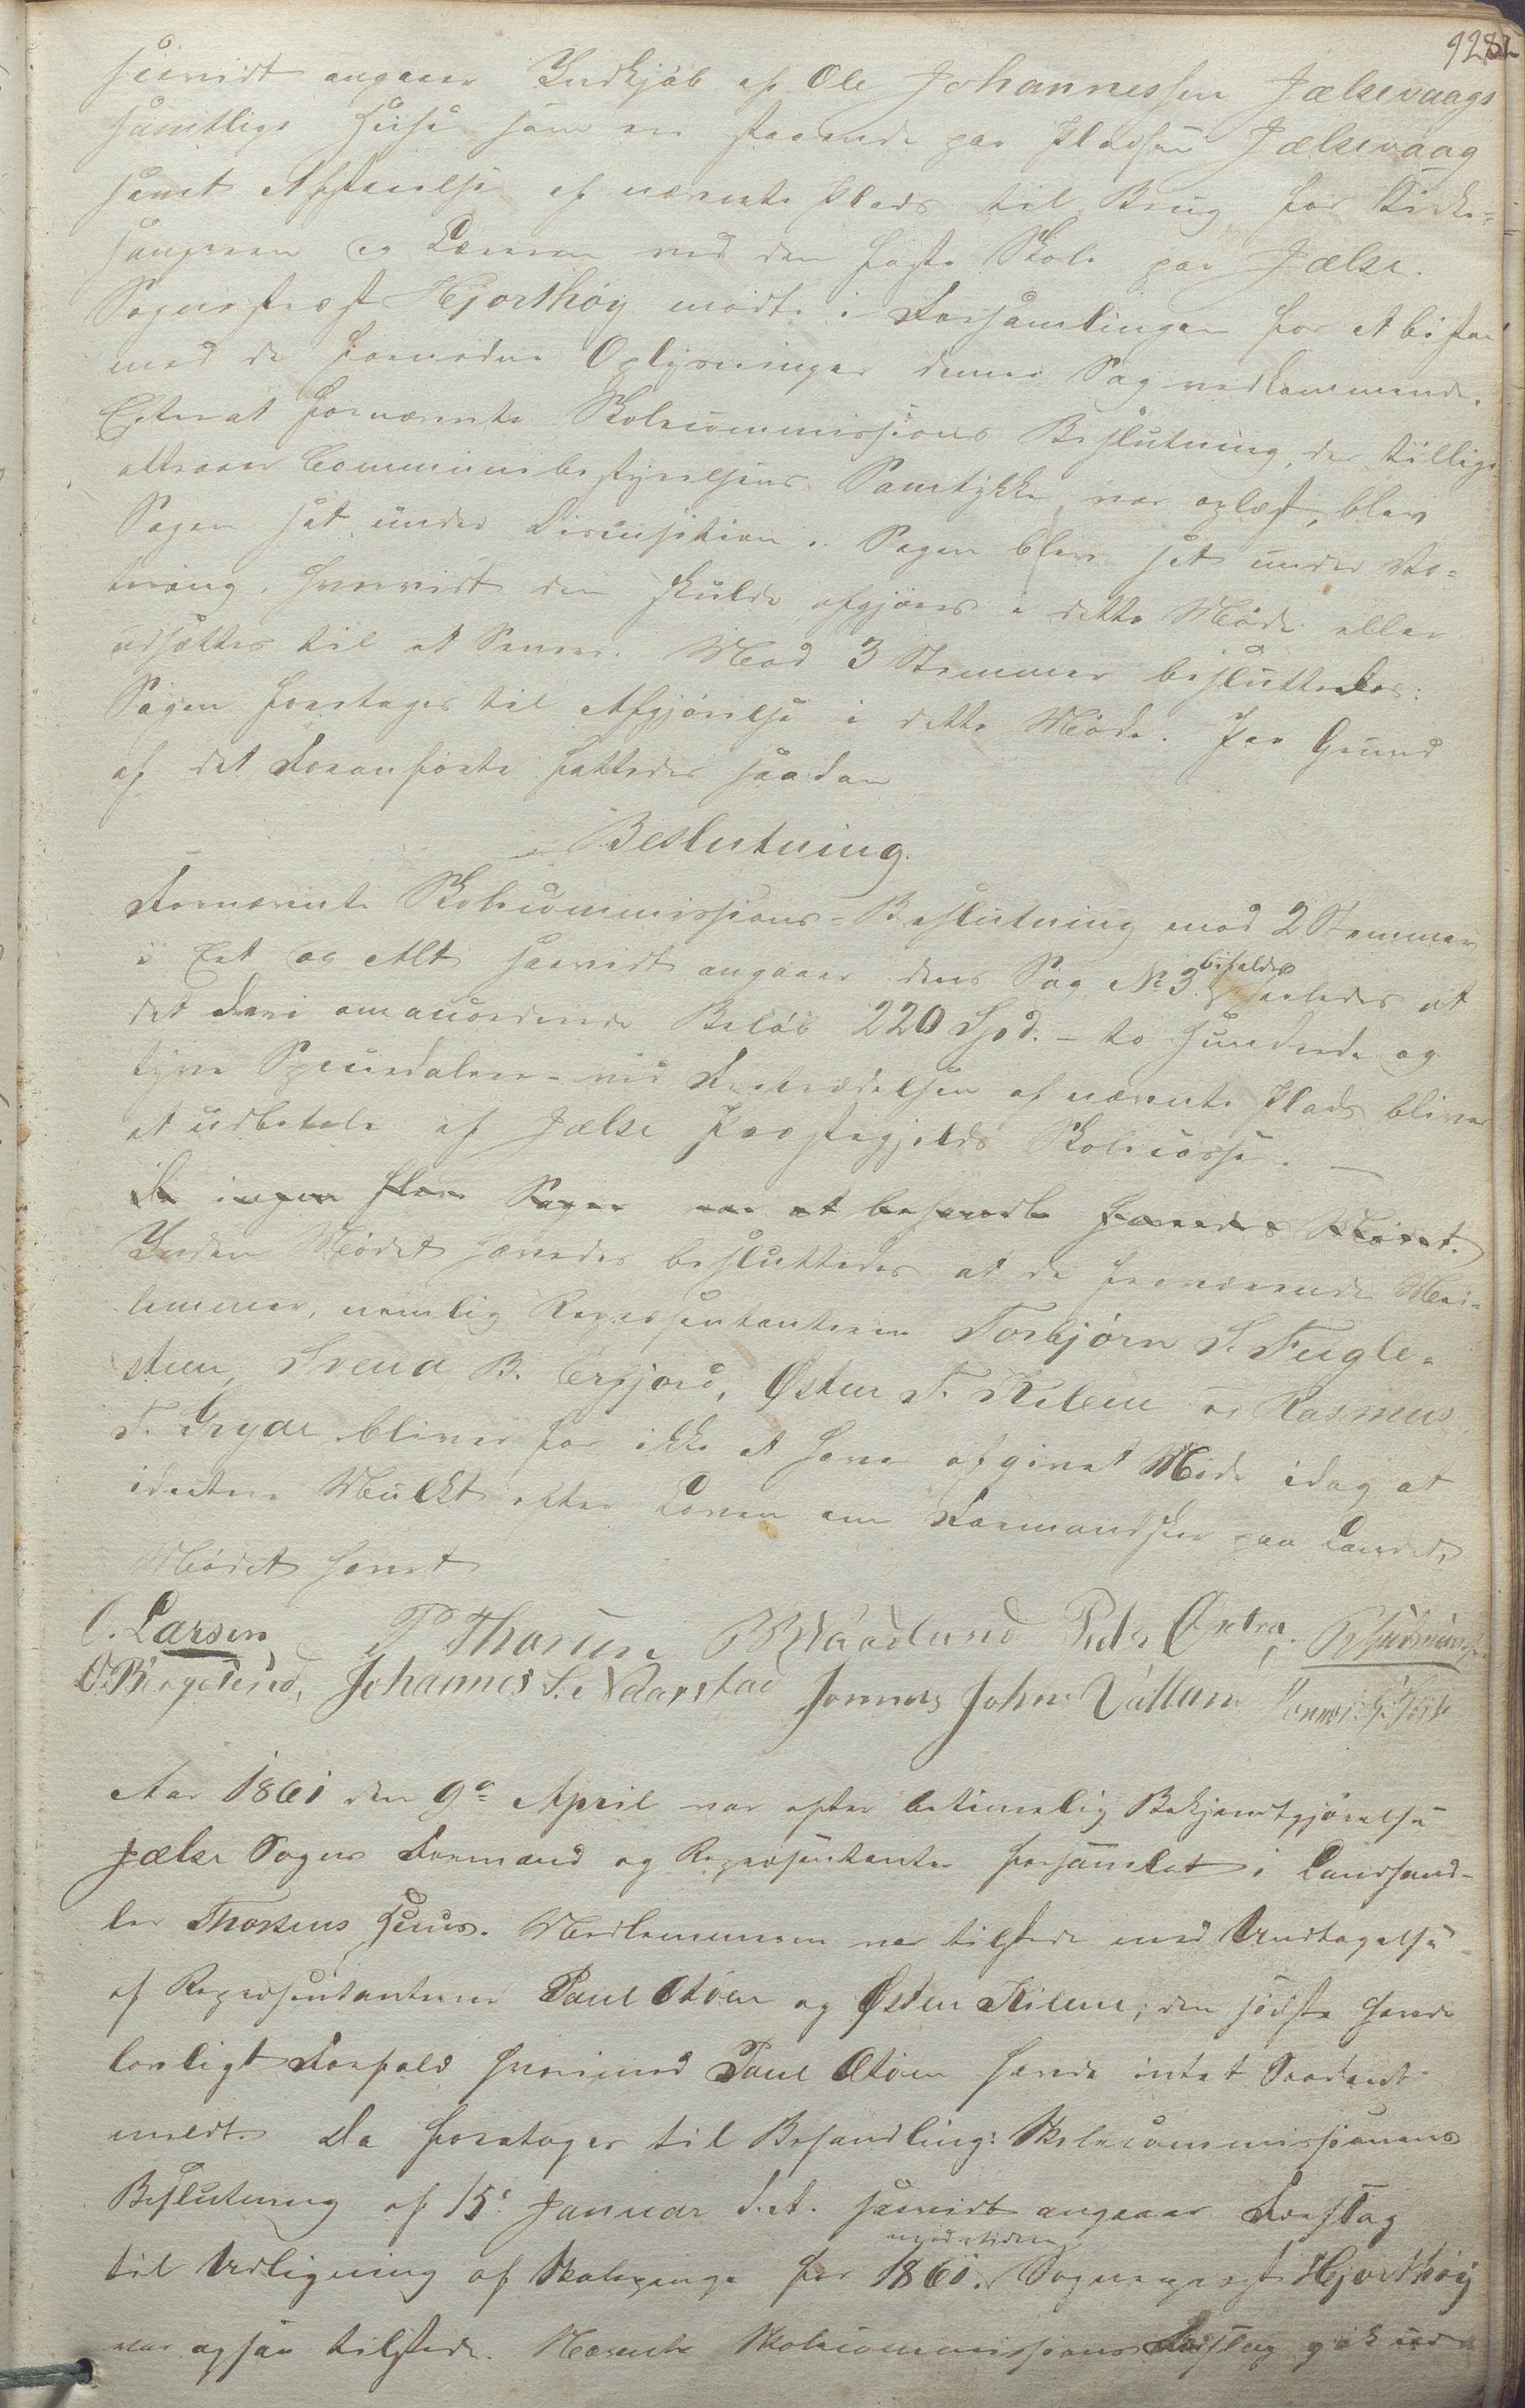 saavidt angaaer Indkjøb af Ole Johannessen Jælsevaags
samtlige Huse som ere staaende paa Pladsen Jælsevaag
samt Afstaaelse af nævnte Plads til Brug for Kirke=
sangeren og Læreren ved den faste Skole paa Jælse.
Sogneprest Hjorthøy mødte i Forsamlingen for at bistaae
med de fornødne Oplysninger denne Sag vedkommende.
Efterat fornævnte Skolecommissions Beslutning, der tillige
attraaer Communebestyrelsens Samtykke var oplæst, blev
Sagen sat under Discussion. Sagen blev sat under Vo=
tering, hvorvidt den skulde afgjøres i dette Møde eller
udsættes til et Senere. Mod 3 Stemmer besluttedes:
Sagen foretages til Afgjørelse i dette Møde. Paa Grund
af det Foranførte fattedes saadan
Beslutning.
Fornævnte Skolecommissions=Beslutning mod 2 Stemmer
i Eet og Alt saavidt angaaer dens Sag No 3 bifaldes saaledes at
det deri omanordnede Beløb 220 Spd. – to Hundrede og
tyve Speciedaler – ved Fratrædelsen af nævnte Plads bliver
at udbetale af Jælse Præstegjelds Skolecasse. –
Da ingen flere Sager var at behandle hævedes Mødet.
Inden Mødet hævedes besluttedes at de fraværende Med=
lemmer, nemlig Repræsentanterne Torbjørn S. Fugle=
steen, Svend B. Erfjord, Østen T. Kilene og Rasmus
T. Tryde bliver for ikke at have afgivet Møde idag at
idømme Mulkt efter Loven om Formandskab paa Landet,
Mødet hævet
O. Larsen P Thorsen Peder Østra,
Johannes S. Naarstad Jonnas Johns Vatland
Aar 1861 den 9de April var efter betimelig Bekjendtgjørelse
Jælse Sogns Formænd og Repræsentanter forsamlet i Landhand=
ler Thorsens Huus. Medlemmerne var tilstede med Undtagelse
af Repræsentanterne Poul Otøen og Østen Kilene; den sidste havde
lovligt Forfald hvorimod Poul Otøen havde intet Saadant
meldt. Da foretages til Behandling: Skolecommissionens
Beslutning af 15de Januar d.A. saavidt angaaer Forslag
til Udligning af Skolepenge for 1861. Sogneprest Hjorthøy
var ogsaa tilstede. Nævnte Skolecommissions Forslag gik ud